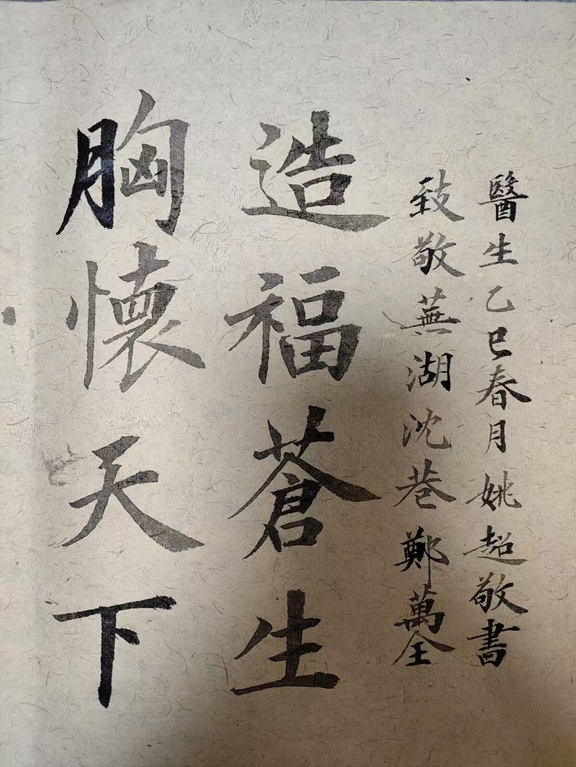 胸懷天下
造福蒼生
致敬蕪湖沈巷鄭萬全
醫生乙巳春月姚超敬書